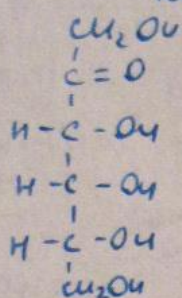 CH2OH
C=O
H-C-OH
H-C-OH
H-C-OH
CH2OH